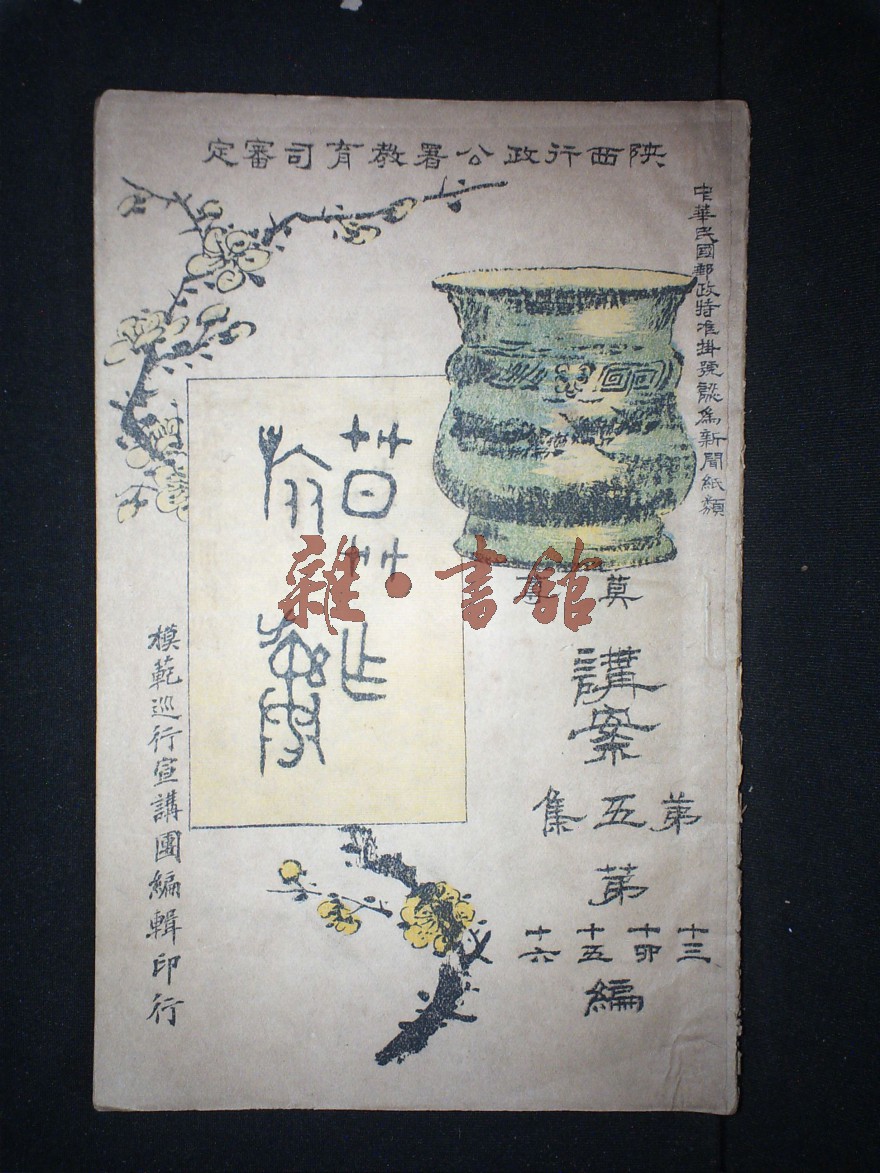 陝西行政公署教育司審定
中華民國郵政特准掛號認爲新聞紙類
講案
第五集
第
十三
十四
十五
十六
編
模範巡行宣講團編輯印行
雜·書館